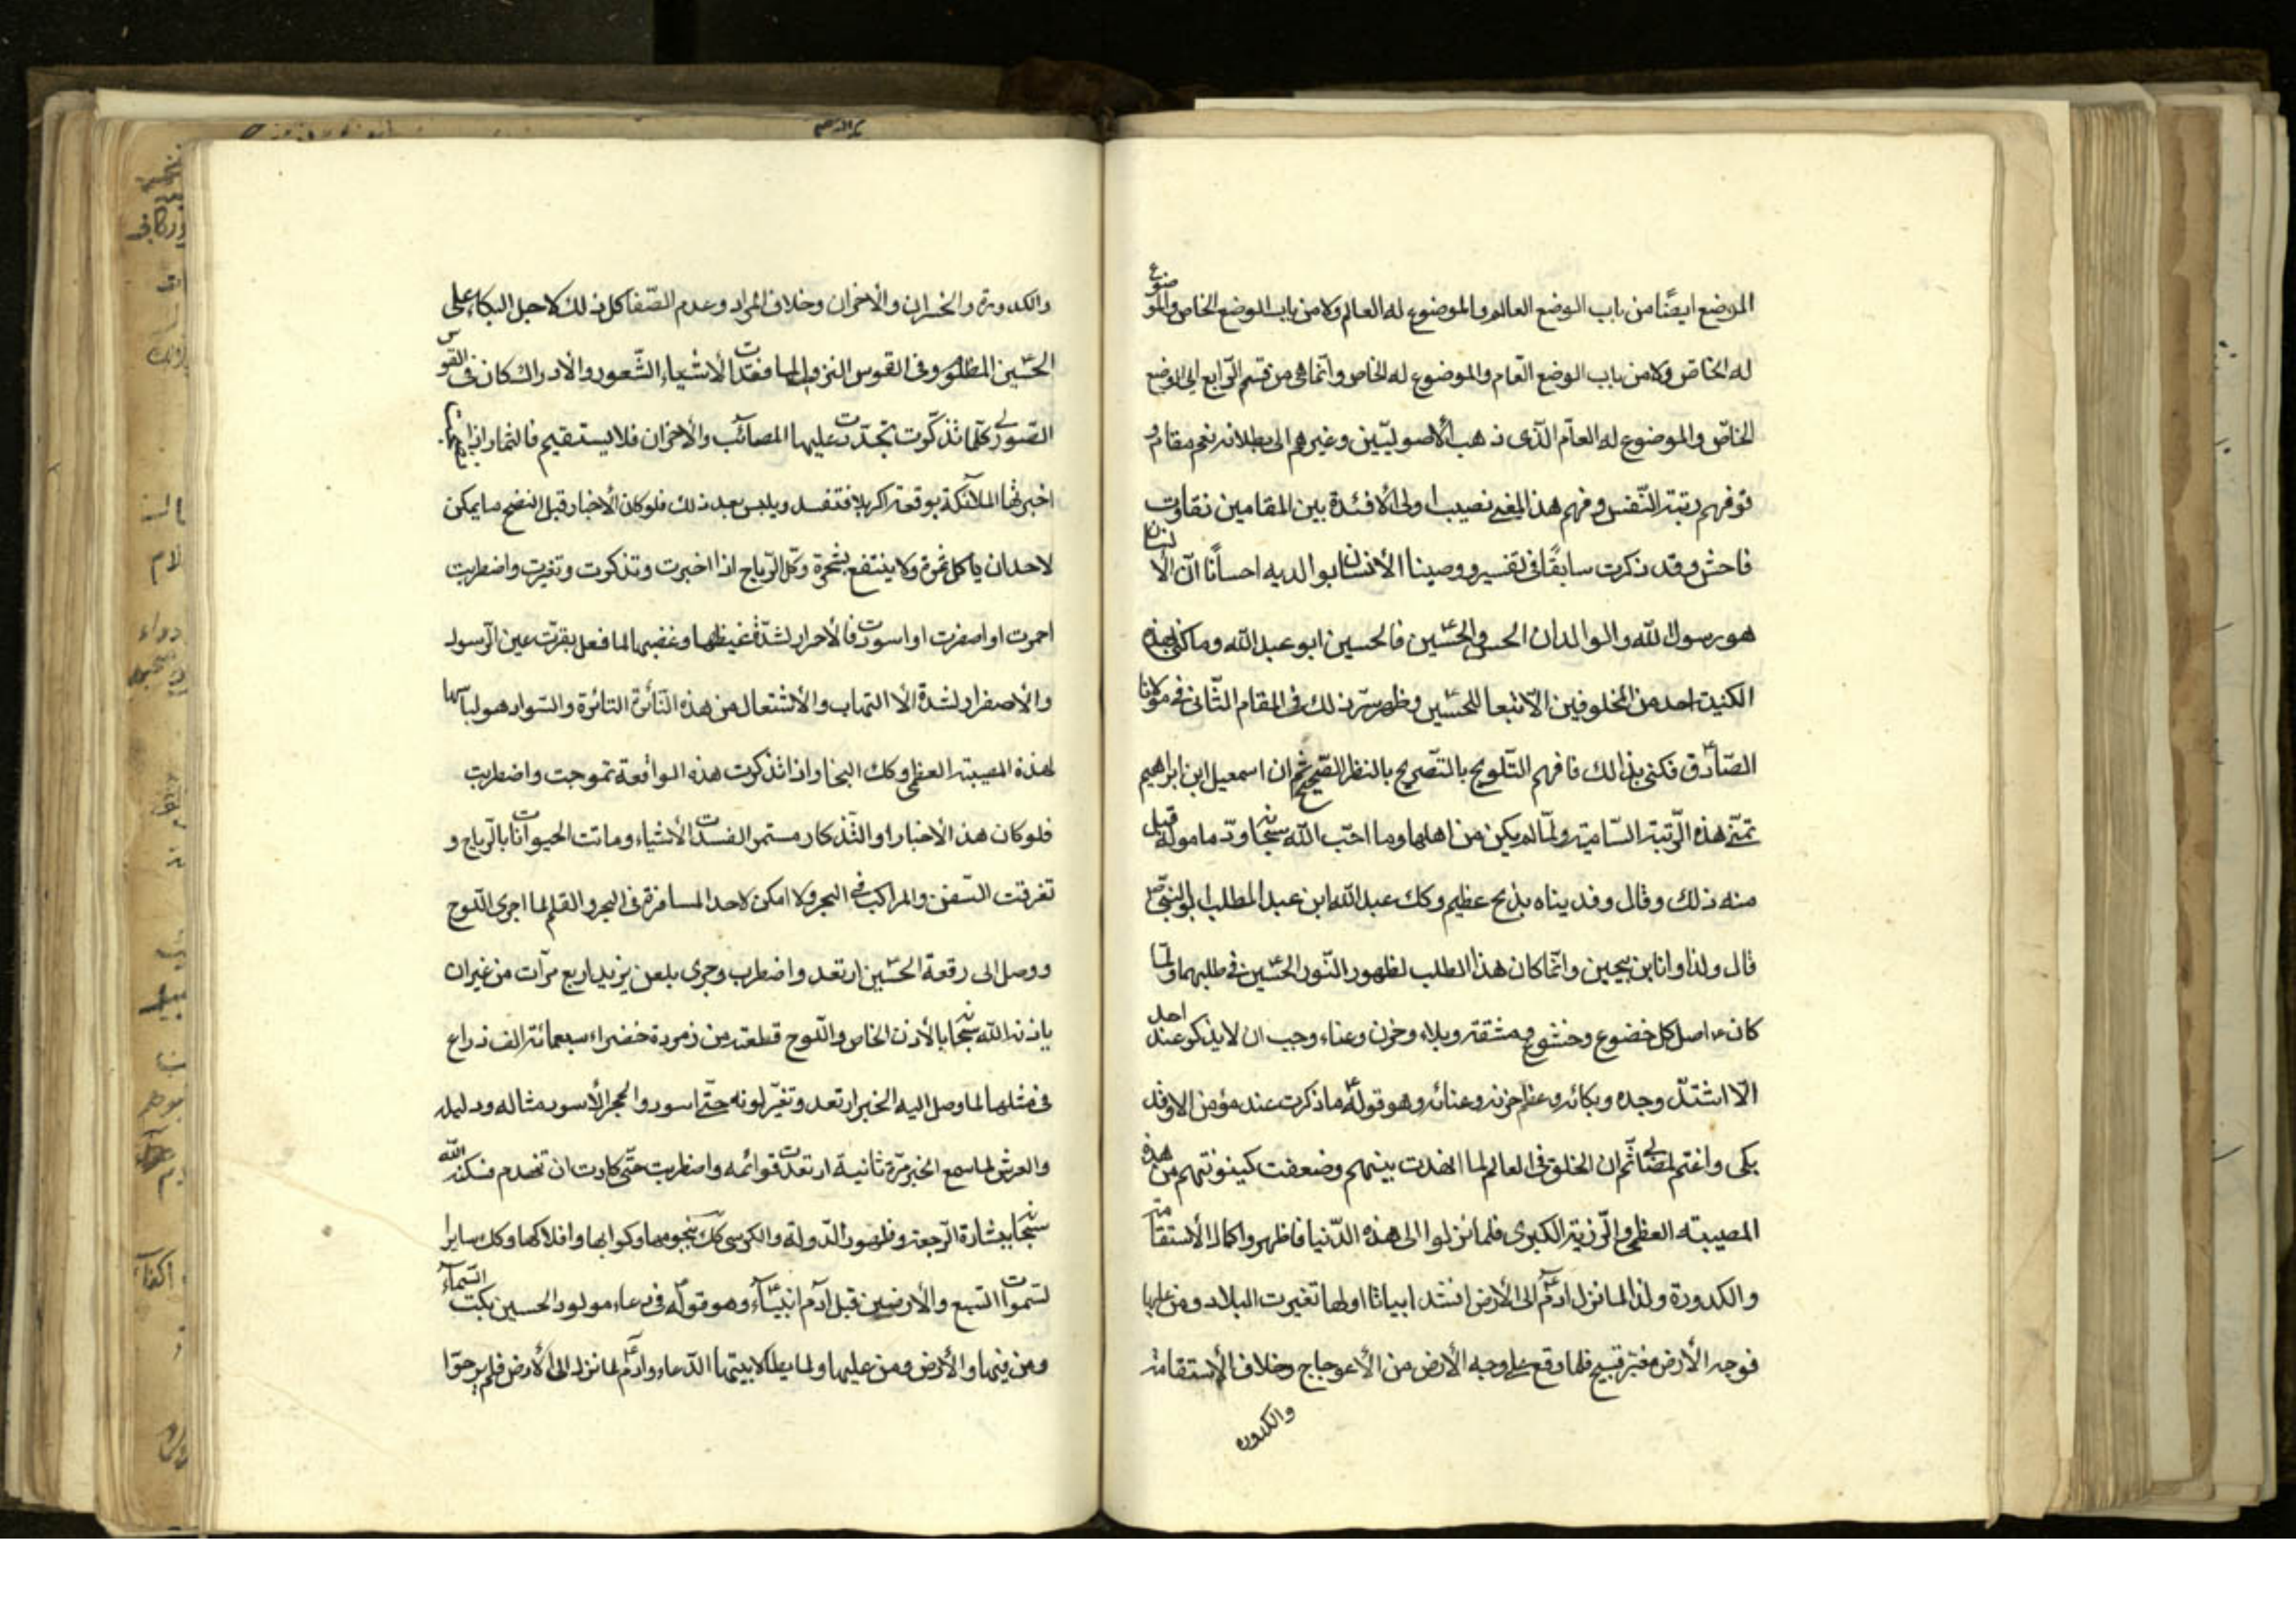 الموضع ايضًا من باب الوضع العالم والموضوع له العالم ولا من باب الوضع الخاص والموضوع
له الخاصّ ولا من باب الوضع العّام والموضوع له الخاص وانّما هى من قسم الرّابع اى الوضع
الخاصّ والموضوع له العاّم الّذى ذهب الأصولييّن وغيرهم الى بطلانه نعم مقام
توفهم رتبة النّفس وفهم هذا المعنى نصيب اولى الأفئدة بين المقامين تفاوت
فاحش وقد ذكرت سابقًا فى تفسير ووصينا الأنسان بوالديه احسانًا انّ الأنسان
هو رسول الله والوالدان الحسن والحسّين فالحسين ابو عبد الله وما كنى بهذه
الكنية احد من المخلوقين الّا تبعا للحسّين وظهر سرّ ذلك فى المقام الثّانى فى مولانا
الصّادق فكنى بذالك فافهم التّلويح بالتّصريح بالنظر الصّحيح ثم ان اسمعيل ابن ابراهيم
تمنّى هذه الرّتبة السّامية ولمّا لم يكن من اهلها وما احّب الله سبحانه وردّ ماموله قبل
منه ذلك وقال وفديناه بذبح عظيم وكك عبد الله ابن عبد المطلب ابو النبّى ص
قال ولذا وانا ابن ذبيحين وانّما كان هذا الطلب لظهور النّور الحسّين فى طلبهما ولمّا
كان ع اصل كل خضوع وخشوع ومشقة وبلاء وحزن وعناء وجب ان لا يذكر عند احد
الّا اشتدّ وجده وبكائه وعظم حزنه وعنائه وهو قوله ع ما ذكرت عند مؤمن الا وقد
بكى واغتم لمصابى ثّم ان الخلق فى العالم لما انهدت بينهم وضعفت كينونتهم من هذه
المصيبته العظمى والرّزية الكبرى فلما نزلوا الى هذه الدّنيا فاظهروا كمال الأستقامة
والكدورة ولذا لما نزل ادمّ الى الأرض انشد ابياتا اولها تغيرت البلاد ومن عليها
فوجه الأرض مغبّر قبيح فلما وقع على وجه الأرض من الأعوجاج وخلاف الأستقامة
والكدورة
والكدورة والخسران والأحزان وخلاف المراد وعدم الصّفا كل ذلك لاجل البكاء على
الحسّين المظلوم وفى القوس النزولى لما فقدت الأشياء الشّعور والأدراك كان فى القوس
الصّورى كلّما تذكّرت تجدّدت عليها المصائب والأحزان فلا يستقيم فالثمار اذا
اخبرتها الملائكة بوقعة كربلا فتفسد ويلبس بعد ذلك فلو كان الأخبار قبل النضج ما يمكن
لاحد ان ياكل ثمرة ولا ينتفع بشجرة وكّ الرّياح اذا اخبرت وتذكرت وتغيرت واضطربت
احمرت او اصفرت او اسودّت فالأحمرار لشدّة غيظها وغضبها لما فعل بقرّت عين الرّسول
والأصفرار لشدة الألتهاب والأشتعال من هذه النّائرة الثائرة والسّواد هو لباسها
لهذة المصيبته العظمى وكك البحار اذا تذكرت هذه الواقعة تموجت واضطربت
فلو كان هذ الأخبار او التّذكار مستمر الفسدت الأشياء وماتت الحيوانات بالرّياح و
تغرقت السّفن والمراكب فى البحر ولا امكن لاحد المسافرة فى البحر والقلم لما اجرى اللّوح
ووصل الى رقعة الحسّين ارتعد واضطرب وجرى بلعن يزيد اربع مرّات من غير ان
ياذنه الله سبحانه بالأذن الخاص واللّوح قطعة من زمردة خضراء سبعمائة الف ذراع
فى مثلها لما وصل اليه الخبر ارتعد وتغيّر لونه حتّى اسود والحجر الأسود مثاله ودليله
والعرش لما سمع الخبر مرّة ثانية ارتعدت قوائمه واضطربت حتّى كادت ان تهدم فسكنه الله
سبحانه ببشارة الرّجعة وظهور الدّولة والكرسى كك بنجومها وكواكبها وافلاكها وكك ساير
السّموات السّبع والأرضين قبل ادم ابتّ وهو قوله فى دعاء مولود الحسين بكت السّماء
ومن فيها والأرض ومن عليها ولما يطأ لابيتها الدّعاء وادمّ لما نزل الى الأرض فلم يرحوا